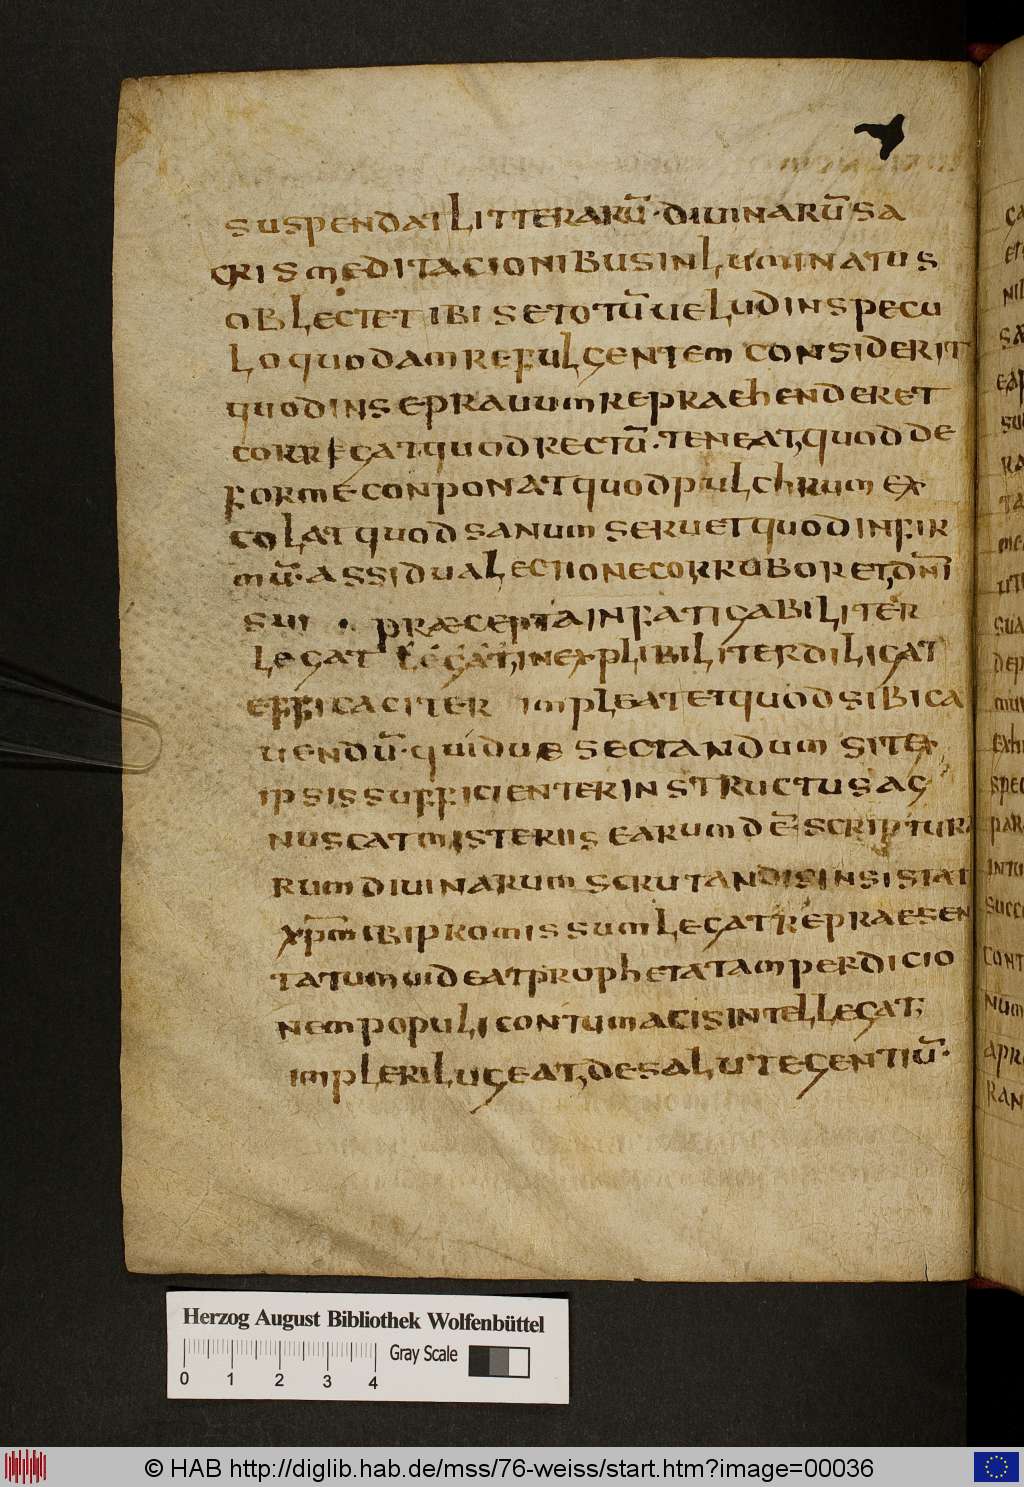 suspendat litterarū · diuinarū sa
cris meditacionibus inluminatus
oblectet ibi se totū uelud in specu
lo quodam refulgentem considerit
quod in se prauum repraehenderet
corregat quod rectū · teneat, quod de
forme conponat quod pulchrum ex
colat quod sanum seruet quod infir
mū · assidua lectione corruboret, dnī
sui · praecepta infatigabiliter
legat legat, inexplibiliter diligat
efficaciter impleat et quod sibi ca
uendū · quidue sectandum sit ex
ipsis sufficienter instructus ag
nuscat misteriis earum dē scriptura
rum diuinarum scrutandis insistat
xp̄m ibi promissum legat repraesen
tatum uideat prophetatam perdicio
nem populi contumacis intellegat,
impleri lugeat, de salute gentiū ·
Herzog August Bibliothek Wolfenbüttel
Gray Scale
0 1 2 3 4
© HAB http://diglib.hab.de/mss/76-weiss/start.htm?image=00036